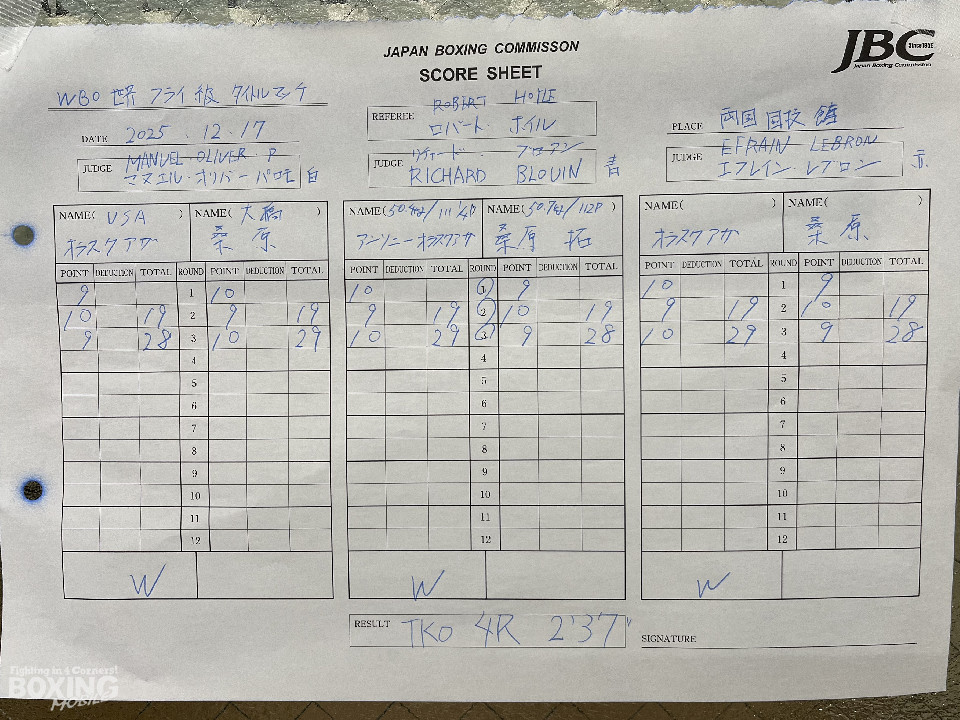 JAPAN BOXING COMMISSON
SCORE SHEET
JBC Since1952
Japan Boxing Commission
WBO 世界 フライ級 タイトルマッチ
DATE 2025.12.17
REFEREE ROBERT HOYLE
ロバート・ホイル
PLACE 両国国技館
JUDGE MANUEL・OLIVER・P
マヌエル・オリバー・パロモ 白
JUDGE リチャード・ブロアン
RICHARD BLOUIN 青
JUDGE EFRAIN LEBRON
エフレイン・レブロン 赤
NAME( USA ) NAME( 大橋 )
オラスクアガ 桑原
POINT DEDUCTION TOTAL ROUND POINT DEDUCTION TOTAL
9 1 10
10 19 2 9 19
9 28 3 10 29
4
5
6
7
8
9
10
11
12
W
NAME(50.4kg/111 1/4P NAME(50.7kg/112P )
アンソニー・オラスクアガ 桑原 拓
POINT DEDUCTION TOTAL ROUND POINT DEDUCTION TOTAL
10 1 9
9 19 2 10 19
10 29 3 9 28
4
5
6
7
8
9
10
11
12
W
NAME( ) NAME( )
オラスクアガ 桑原
POINT DEDUCTION TOTAL ROUND POINT DEDUCTION TOTAL
10 1 9
9 19 2 10 19
10 29 3 9 28
4
5
6
7
8
9
10
11
12
W
RESULT TKO 4R 2'37"
SIGNATURE
Fighting in 4 Corners!
BOXING
MOBILE